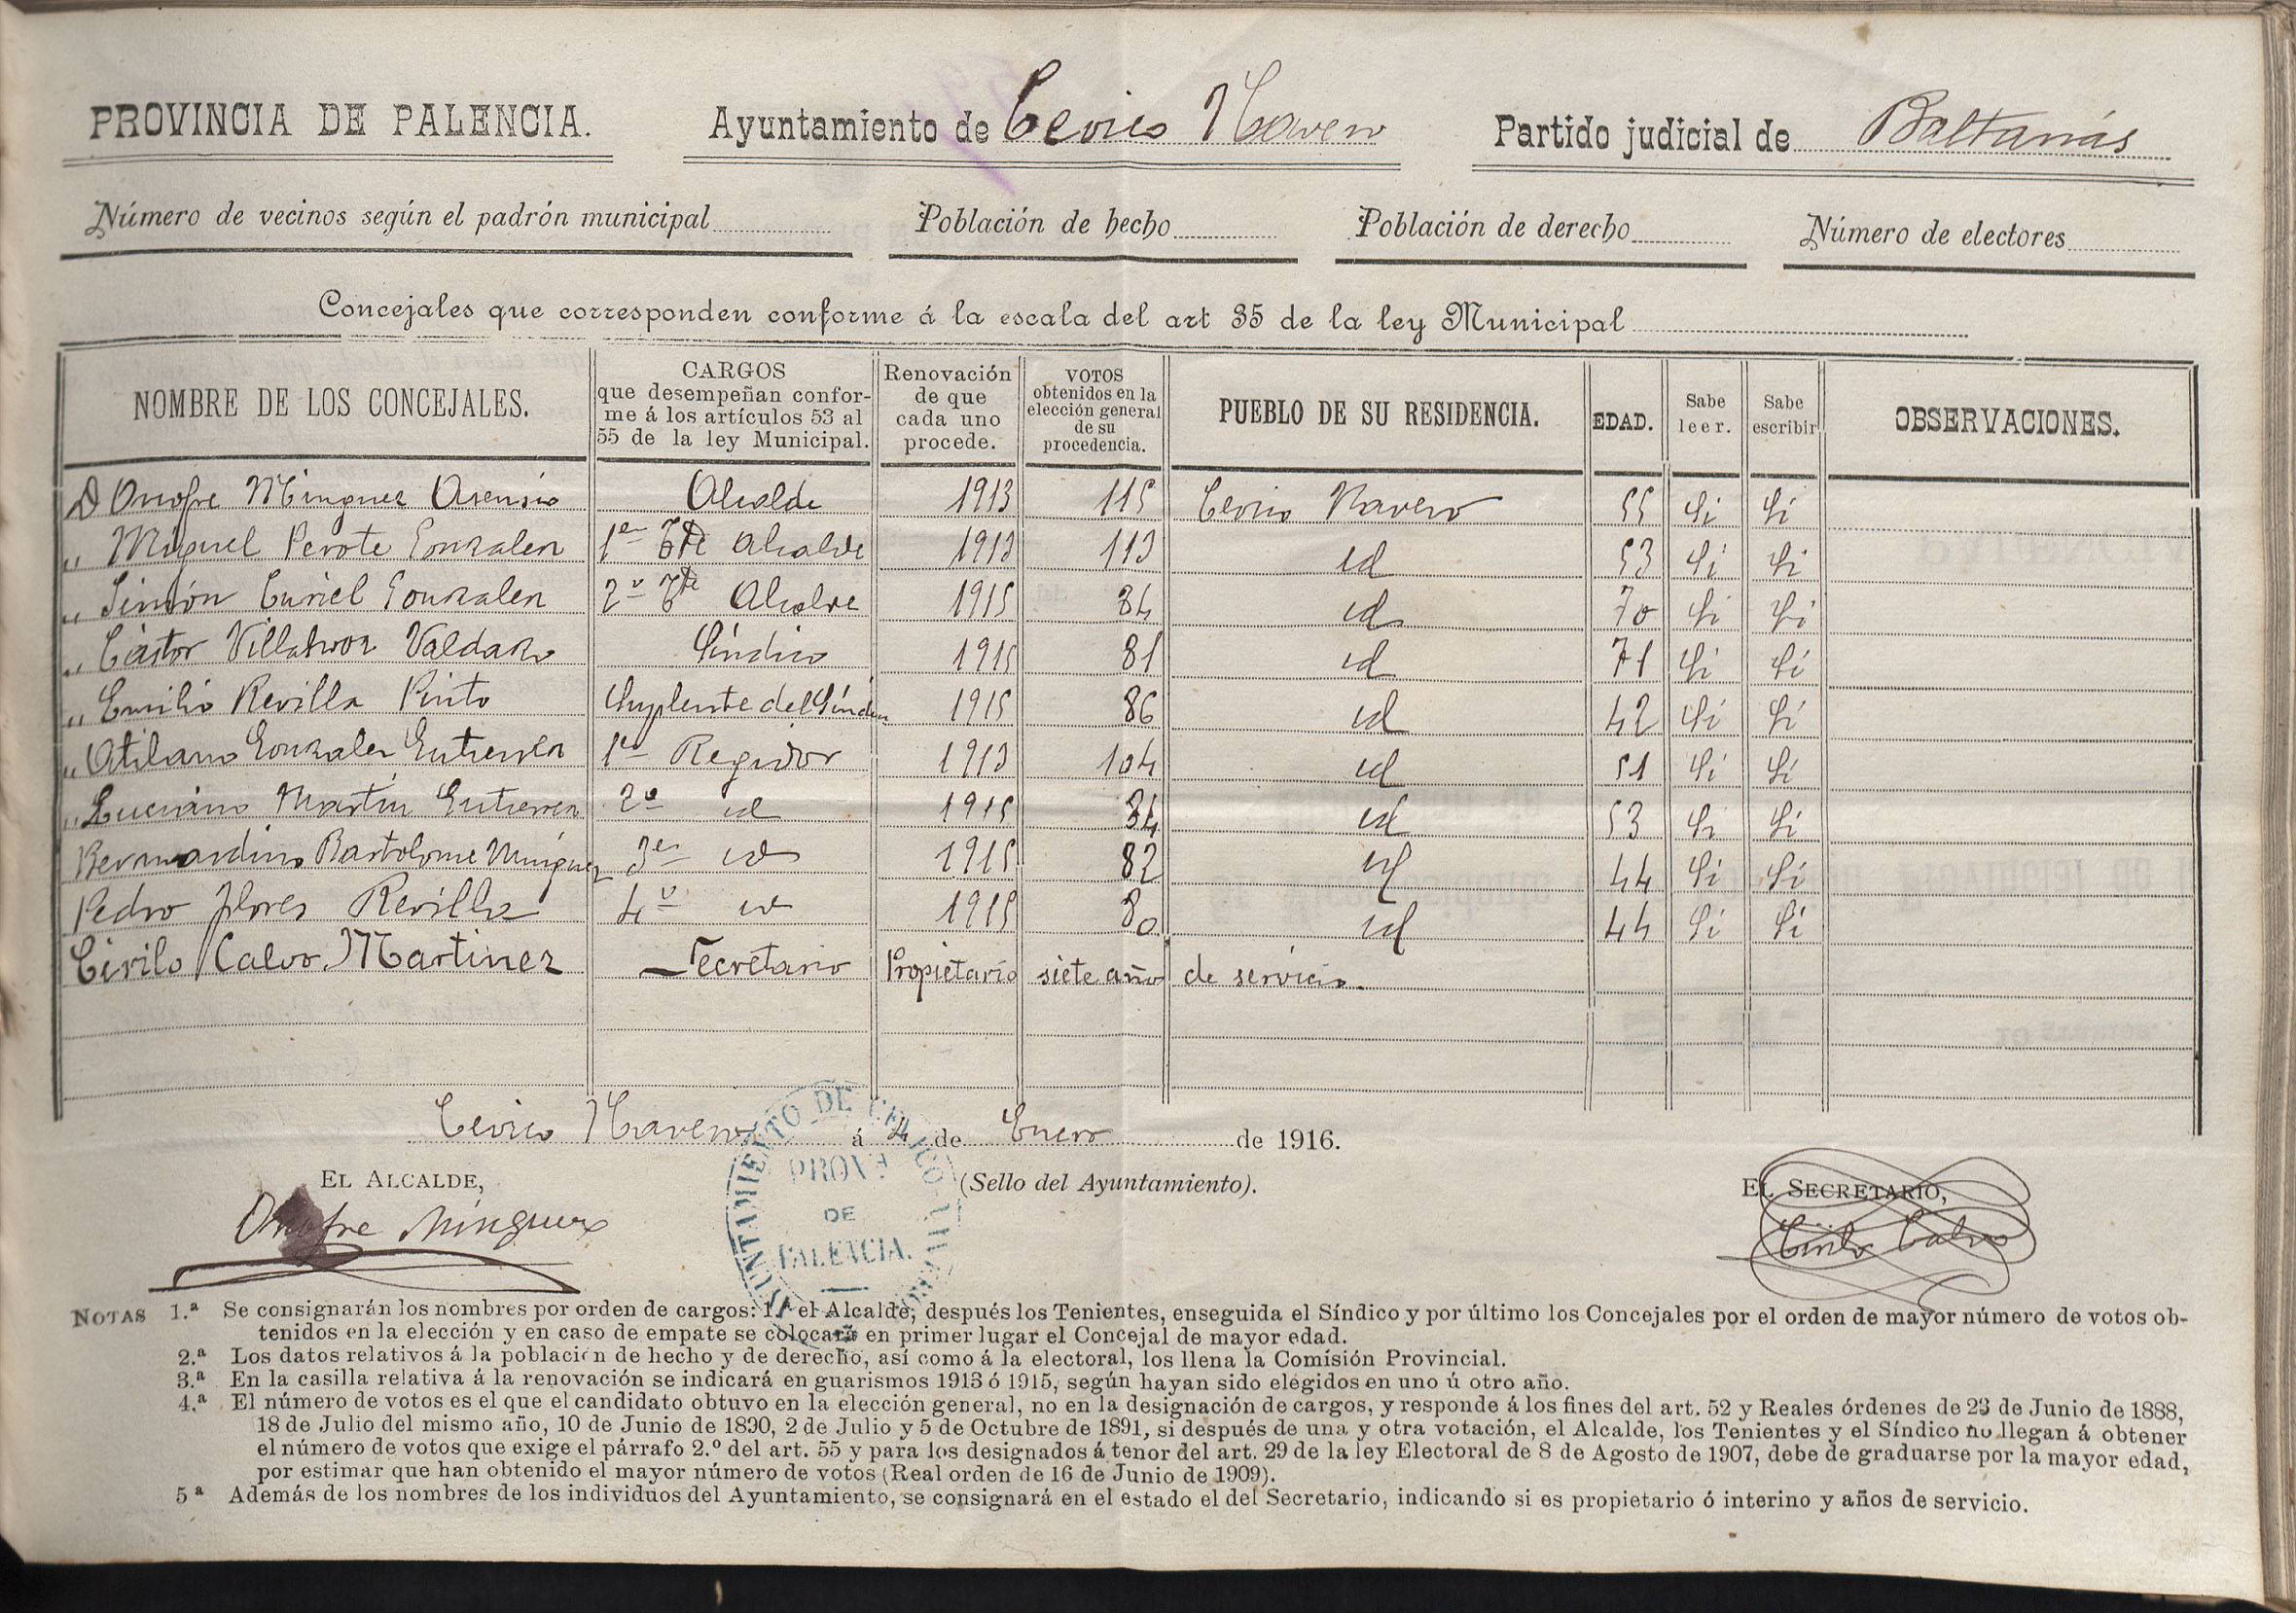 PROVINCIA DE PALENCIA. Ayuntamiento de Cevico Navero Partido judicial de Baltanás
Número de vecinos según el padrón municipal Población de hecho Población de derecho Número de electores
Concejales que corresponden conforme á la escala del art 35 de la ley Municipal
NOMBRE DE LOS CONCEJALES. CARGOS que desempeñan conforme á los artículos 53 al 55 de la ley Municipal. Renovación de que cada uno procede. VOTOS obtenidos en la elección general de su procedencia. PUEBLO DE SU RESIDENCIA. EDAD. Sabe leer. Sabe escribir OBSERVACIONES.
D Onofre Minguez Asensio Alcalde 1913 115 Cevico Navero 55 Si Si
" Miguel Perote Gonzalez 1er Tte Alcalde 1913 113 id 53 Si Si
" Simón Curiel Gonzalez 2º Tte Alcalde 1915 84 id 70 Si Si
" Cástor Villahoz Valdazo Síndico 1915 81 id 71 Si Si
" Emilio Revilla Pinto Suplente del Síndico 1915 86 id 42 Si Si
" Atilano Gonzalez Gutierrez 1er Regidor 1913 104 id 51 Si Si
" Luciano Martín Gutierrez 2º id 1915 84 id 53 Si Si
Bernardino Bartolome Minguez 3er id 1915 82 id 44 Si Si
Pedro Flores Revilla 4º id 1915 80 id 44 Si Si
Cirilo Calvo Martinez Secretario Propietario siete año de servicio.
Cevico Navero á 4 de Enero de 1916.
EL ALCALDE, (Sello del Ayuntamiento). EL SECRETARIO,
Onofre Minguez Cirilo Calvo
AYUNTAMIENTO DE CEVICO-NAVERO
PROVA
DE
PALENCIA.
NOTAS 1.ª Se consignarán los nombres por orden de cargos: 1.º el Alcalde, después los Tenientes, enseguida el Síndico y por último los Concejales por el orden de mayor número de votos ob-
tenidos en la elección y en caso de empate se colocará en primer lugar el Concejal de mayor edad.
2.ª Los datos relativos á la población de hecho y de derecho, así como á la electoral, los llena la Comisión Provincial.
3.ª En la casilla relativa á la renovación se indicará en guarismos 1913 ó 1915, según hayan sido elegidos en uno ú otro año.
4.ª El número de votos es el que el candidato obtuvo en la elección general, no en la designación de cargos, y responde á los fines del art. 52 y Reales órdenes de 23 de Junio de 1888,
18 de Julio del mismo año, 10 de Junio de 1890, 2 de Julio y 5 de Octubre de 1891, si después de una y otra votación, el Alcalde, los Tenientes y el Síndico no llegan á obtener
el número de votos que exige el párrafo 2.º del art. 55 y para los designados á tenor del art. 29 de la ley Electoral de 8 de Agosto de 1907, debe de graduarse por la mayor edad,
por estimar que han obtenido el mayor número de votos (Real orden de 16 de Junio de 1909).
5ª Además de los nombres de los individuos del Ayuntamiento, se consignará en el estado el del Secretario, indicando si es propietario ó interino y años de servicio.